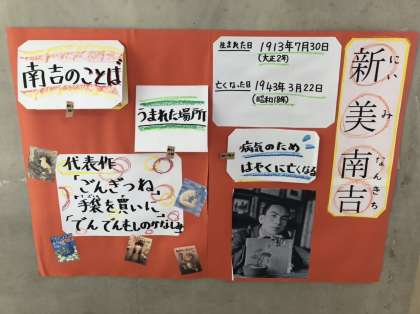 新美南吉
にいみなんきち
生まれた日 1913年7月30日
(大正2年)
亡くなった日 1943年3月22日
(昭和18年)
病気のため
はやくに亡くなる
南吉のことば
うまれた場所
代表作
「ごんぎつね」
「手袋を買いに」
「でんでんむしのかなしみ」